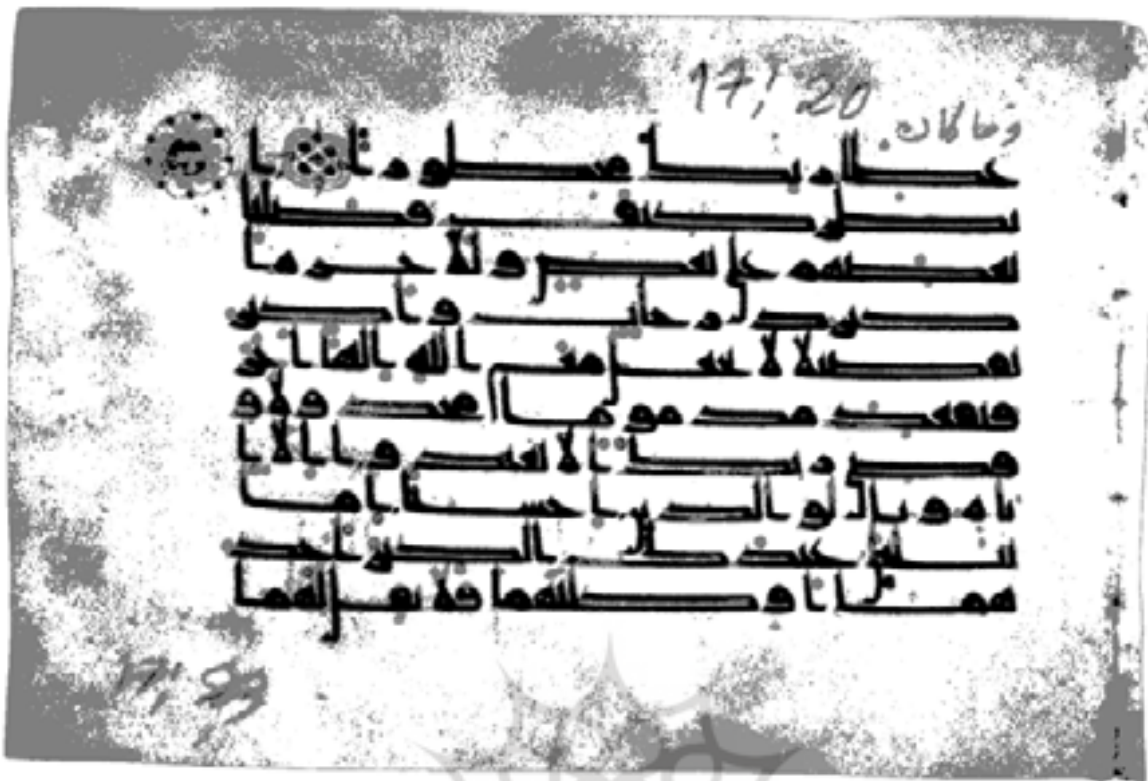 17! 20
وما كان
عطا ربك محظورا ا
نظر كيف فضلنا
بعضهم على بعض وللاخره ا
كبر درجت واكبر
تفضيلا لا تجعل مع الله الها اخر
فتقعد مذموما مخذولا و
قضى ربك الا تعبدوا الا ا
ياه وبالولدين احسنا اما
يبلغن عندك الكبر احد
هما او كلهما فلا تقل لهما